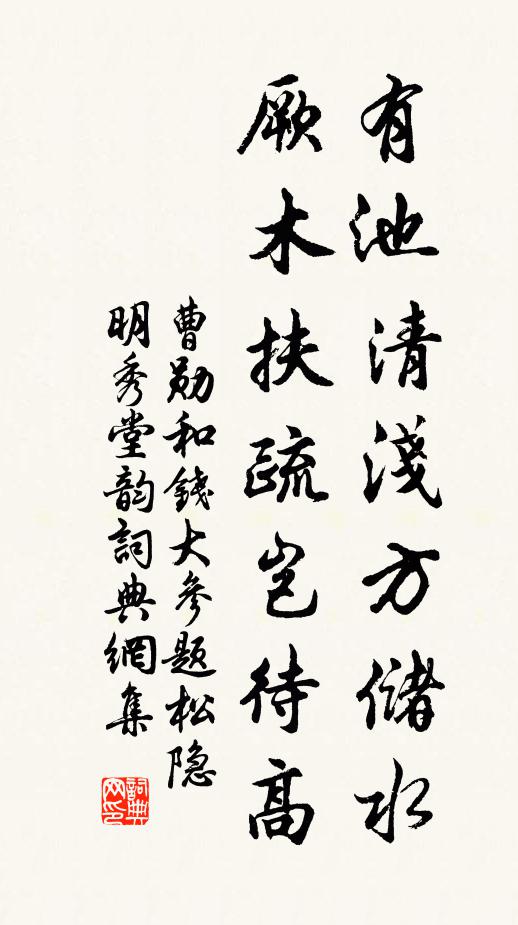 有池清淺方儲水
厥木扶疏豈待高
曹勛和錢大參題松隐
明秀堂韵詞典網集
詞典網印